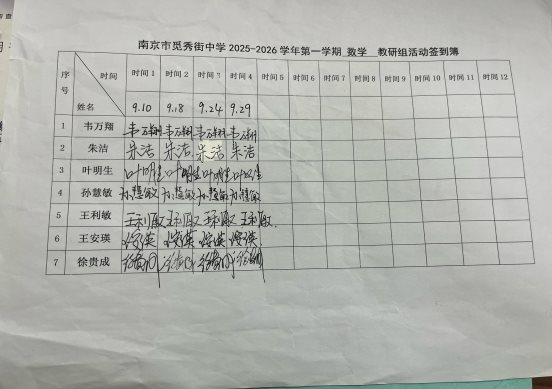 南京市觅秀街中学 2025-2026 学年第一学期 数学 教研组活动签到簿
序号 时间 姓名 时间 1 时间 2 时间 3 时间 4 时间 5 时间 6 时间 7 时间 8 时间 9 时间 10 时间 11 时间 12
9.10 9.18 9.24 9.29
1 韦万翔 韦万翔 韦万翔 韦万翔 韦万翔
2 朱洁 朱洁 朱洁 朱洁 朱洁
3 叶明生 叶明生 叶明生 叶明生 叶明生
4 孙慧敏 孙慧敏 孙慧敏 孙慧敏 孙慧敏
5 王利敏 王利敏 王利敏 王利敏 王利敏
6 王安瑛
7 徐贵成